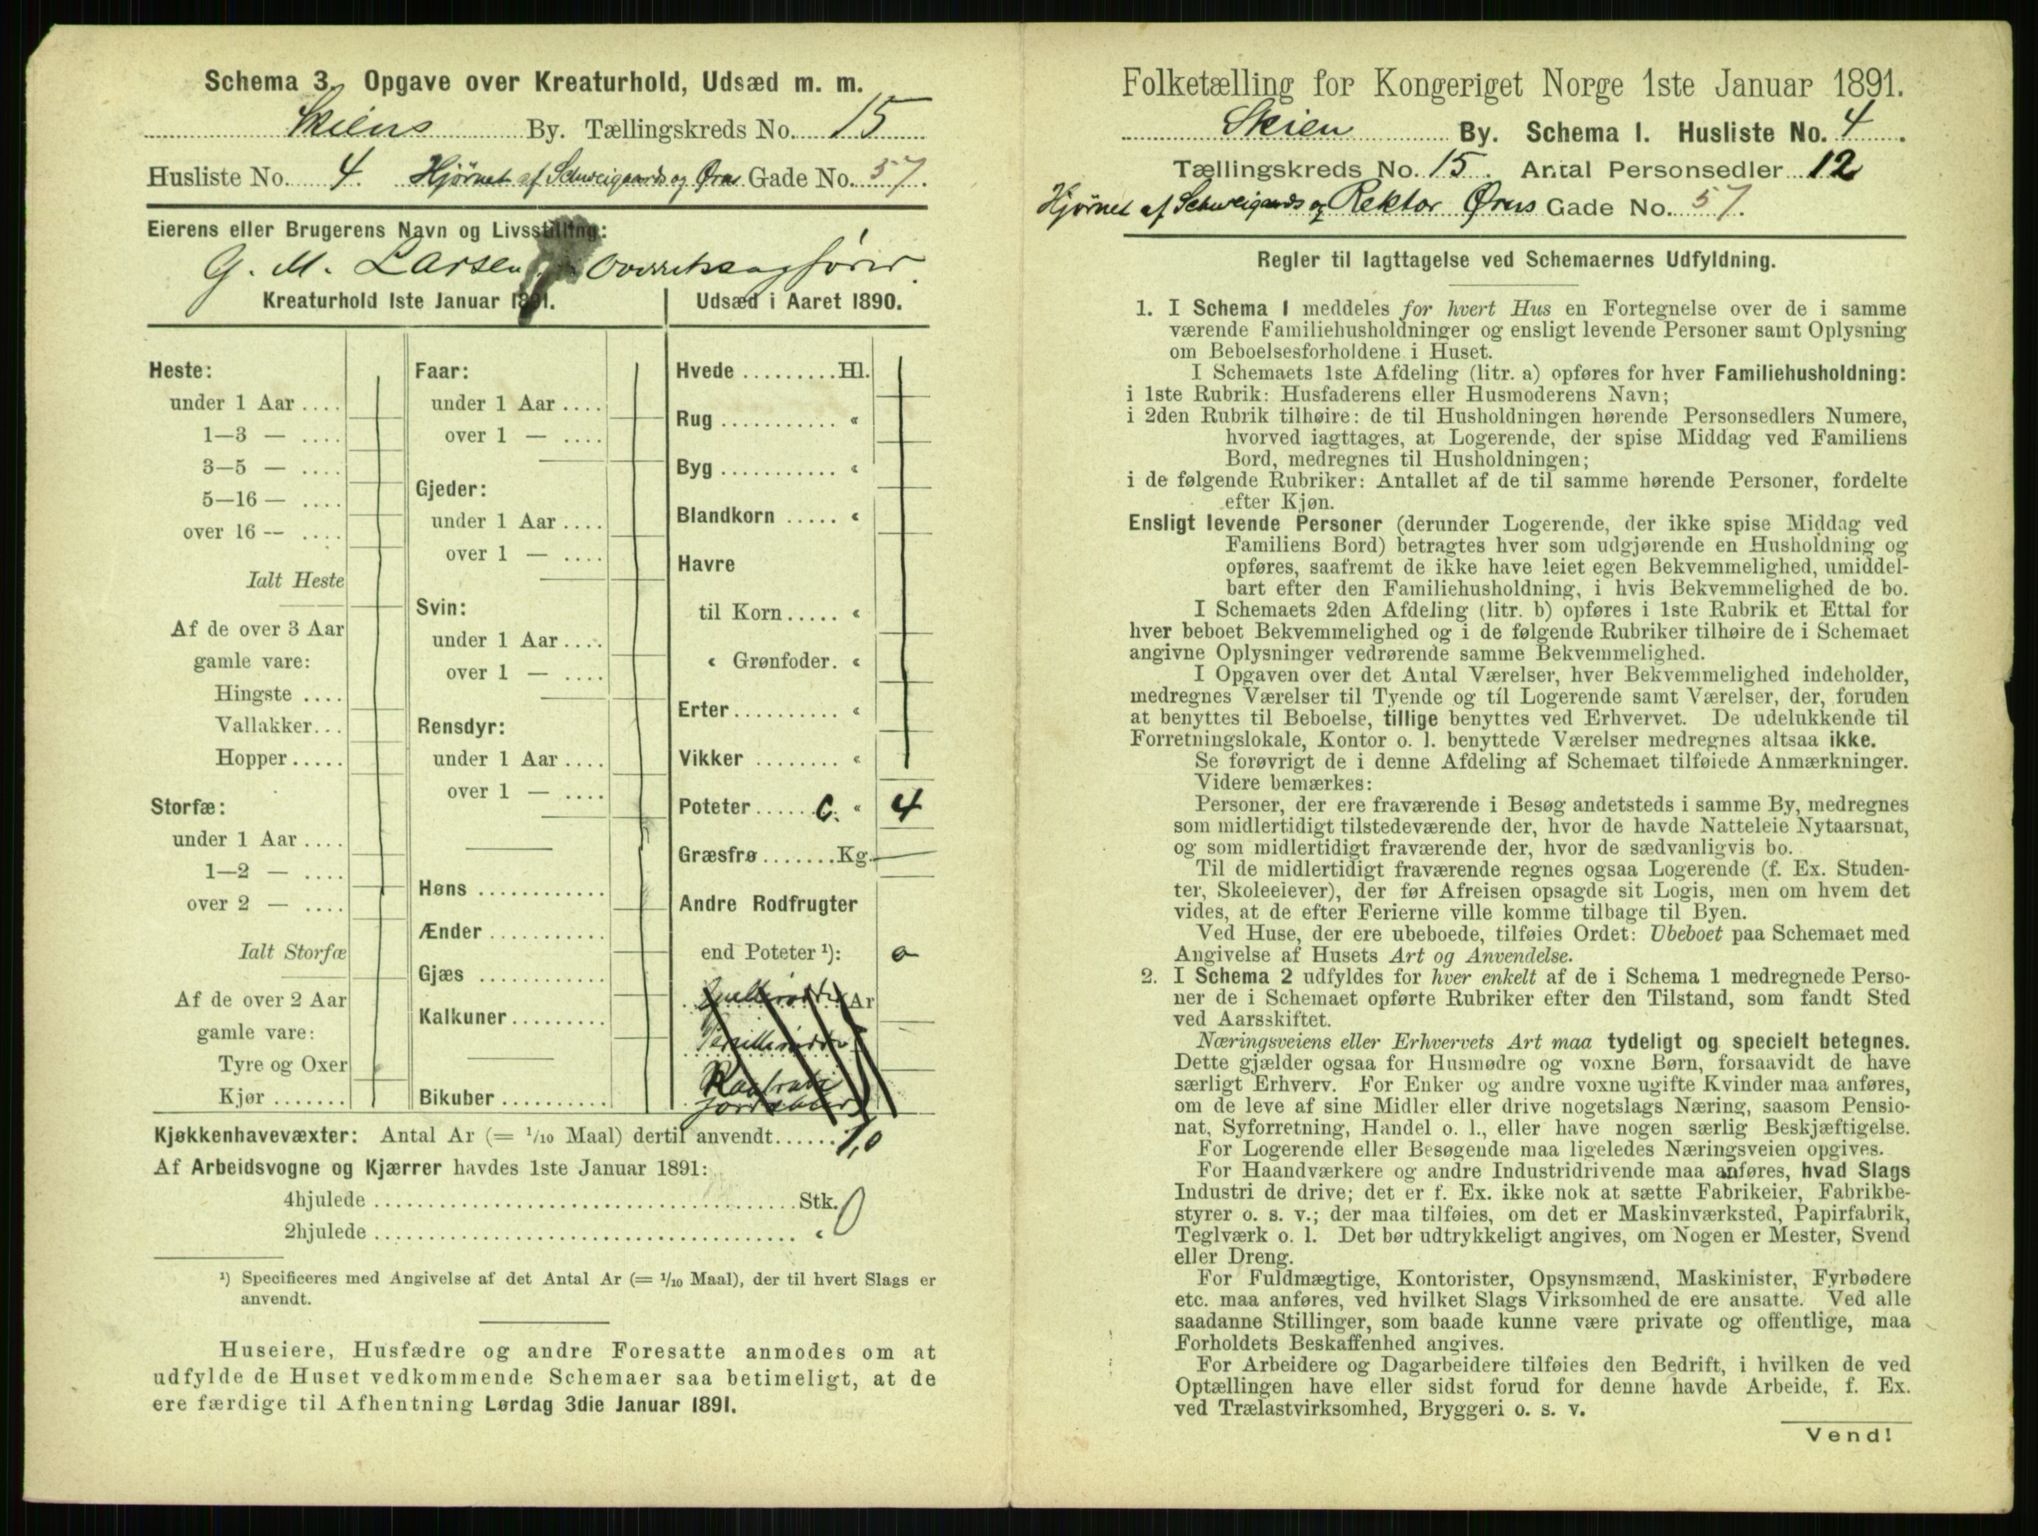 Schema 3. Opgave over Kreaturhold, Udsæd m. m.
Skiens By. Tællingskreds No. 15
Husliste No. 4. Hjørnet af Schweigaards og Ørns Gade No. 57.
Eierens eller Brugerens Navn og Livsstilling:
G. M. Larsen, Overretssagfører.
Kreaturhold 1ste Januar 1891.
Heste:
under 1 Aar ....
1—3 — ....
3—5 — ....
5—16 — ....
over 16 — ....
Ialt Heste
Af de over 3 Aar
gamle vare:
Hingste ....
Vallakker...
Hopper.....
Storfæ:
under 1 Aar ....
1—2 — ....
over 2 — ....
Ialt Storfæ
Af de over 2 Aar
gamle vare:
Tyre og Oxer
Kjør .......
Faar:
under 1 Aar ....
over 1 — ....
Gjeder:
under 1 Aar ....
over 1 — ....
Svin:
under 1 Aar ....
over 1 — ....
Rensdyr:
under 1 Aar ....
over 1 — ....
Høns ............
Ænder ...........
Gjæs ............
Kalkuner.........
Bikuber ..........
Udsæd i Aaret 1890.
Hvede .........Hl.
Rug ........... "
Byg ........... "
Blandkorn ..... "
Havre
til Korn..... "
" Grønfoder. "
Erter.......... "
Vikker ........ "
Poteter ...... C. " 4
Græsfrø .......Kg.
Andre Rodfrugter
end Poteter ¹): 0
Ar
Kjøkkenhavevæxter: Antal Ar (= 1/10 Maal) dertil anvendt...... 1,0
Af Arbeidsvogne og Kjærrer havdes 1ste Januar 1891:
4hjulede ........................................Stk. 0
2hjulede ........................................ "
¹) Specificeres med Angivelse af det Antal Ar (= 1/10 Maal), der til hvert Slags er
anvendt.
Huseiere, Husfædre og andre Foresatte anmodes om at
udfylde de Huset vedkommende Schemaer saa betimeligt, at de
ere færdige til Afhentning Lørdag 3die Januar 1891.
Folketælling for Kongeriget Norge 1ste Januar 1891.
Skien By. Schema 1. Husliste No. 4.
Tællingskreds No. 15. Antal Personsedler 12
Hjørnet af Schweigaards og Rektor Ørns Gade No. 57.
Regler til Iagttagelse ved Schemaernes Udfyldning.
1. I Schema 1 meddeles for hvert Hus en Fortegnelse over de i samme
værende Familiehusholdninger og ensligt levende Personer samt Oplysning
om Beboelsesforholdene i Huset.
I Schemaets 1ste Afdeling (litr. a) opføres for hver Familiehusholdning:
i 1ste Rubrik: Husfaderens eller Husmoderens Navn;
i 2den Rubrik tilhøire: de til Husholdningen hørende Personsedlers Numere,
hvorved iagttages, at Logerende, der spise Middag ved Familiens
Bord, medregnes til Husholdningen;
i de følgende Rubriker: Antallet af de til samme hørende Personer, fordelte
efter Kjøn.
Ensligt levende Personer (derunder Logerende, der ikke spise Middag ved
Familiens Bord) betragtes hver som udgjørende en Husholdning og
opføres, saafremt de ikke have leiet egen Bekvemmelighed, umiddel-
bart efter den Familiehusholdning, i hvis Bekvemmelighed de bo.
I Schemaets 2den Afdeling (litr. b) opføres i 1ste Rubrik et Ettal for
hver beboet Bekvemmelighed og i de følgende Rubriker tilhøire de i Schemaet
angivne Oplysninger vedrørende samme Bekvemmelighed.
I Opgaven over det Antal Værelser, hver Bekvemmelighed indeholder,
medregnes Værelser til Tyende og til Logerende samt Værelser, der, foruden
at benyttes til Beboelse, tillige benyttes ved Erhvervet. De udelukkende til
Forretningslokale, Kontor o. l. benyttede Værelser medregnes altsaa ikke.
Se forøvrigt de i denne Afdeling af Schemaet tilføiede Anmærkninger.
Videre bemærkes:
Personer, der ere fraværende i Besøg andetsteds i samme By, medregnes
som midlertidigt tilstedeværende der, hvor de havde Natteleie Nytaarsnat,
og som midlertidigt fraværende der, hvor de sædvanligvis bo.
Til de midlertidigt fraværende regnes ogsaa Logerende (f. Ex. Studen-
ter, Skoleelever), der før Afreisen opsagde sit Logis, men om hvem det
vides, at de efter Ferierne ville komme tilbage til Byen.
Ved Huse, der ere ubeboede, tilføies Ordet: Ubeboet paa Schemaet med
Angivelse af Husets Art og Anvendelse.
2. I Schema 2 udfyldes for hver enkelt af de i Schema 1 medregnede Perso-
ner de i Schemaet opførte Rubriker efter den Tilstand, som fandt Sted
ved Aarsskiftet.
Næringsveiens eller Erhvervets Art maa tydeligt og specielt betegnes.
Dette gjælder ogsaa for Husmødre og voxne Børn, forsaavidt de have
særligt Erhverv. For Enker og andre voxne ugifte Kvinder maa anføres,
om de leve af sine Midler eller drive nogetslags Næring, saasom Pensio-
nat, Syforretning, Handel o. l., eller have nogen særlig Beskjæftigelse.
For Logerende eller Besøgende maa ligeledes Næringsveien opgives.
For Haandværkere og andre Industridrivende maa anføres, hvad Slags
Industri de drive; det er f. Ex. ikke nok at sætte Fabrikeier, Fabrikbe-
styrer o. s. v.; der maa tilføies, om det er Maskinværksted, Papirfabrik,
Teglværk o. l. Det bør udtrykkeligt angives, om Nogen er Mester, Svend
eller Dreng.
For Fuldmægtige, Kontorister, Opsynsmænd, Maskinister, Fyrbødere
etc. maa anføres, ved hvilket Slags Virksomhed de ere ansatte. Ved alle
saadanne Stillinger, som baade kunne være private og offentlige, maa
Forholdets Beskaffenhed angives.
For Arbeidere og Dagarbeidere tilføies den Bedrift, i hvilken de ved
Optællingen have eller sidst forud for denne havde Arbeide, f. Ex.
ved Trælastvirksomhed, Bryggeri o. s. v.
Vend!